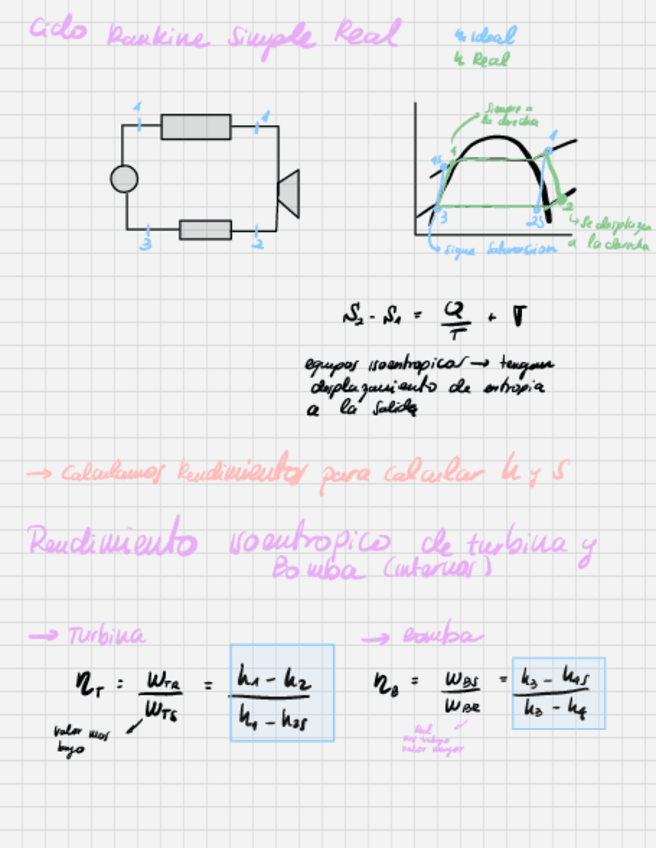 Ciclo Rankine Simple Real
η ideal
η Real
1
1
3
2
siempre a
la derecha
4s
4
1
3
2s
2
se desplaza
a la derecha
sigue saturacion
S₂ - S₁ = Q/T + σ
equipos isoentropicos → tengan
desplazamiento de entropia
a la salida
→ Calculamos Rendimientos para calcular h y s
Rendimiento isoentropico de turbina y
Bomba (internos)
→ Turbina
→ Bomba
η_T = W_TR / W_TS = (h₁ - h₂) / (h₁ - h₂s)
η_B = W_BS / W_BR = (h₃ - h₄s) / (h₃ - h₄)
valor mas
bajo
Real
valor mayor